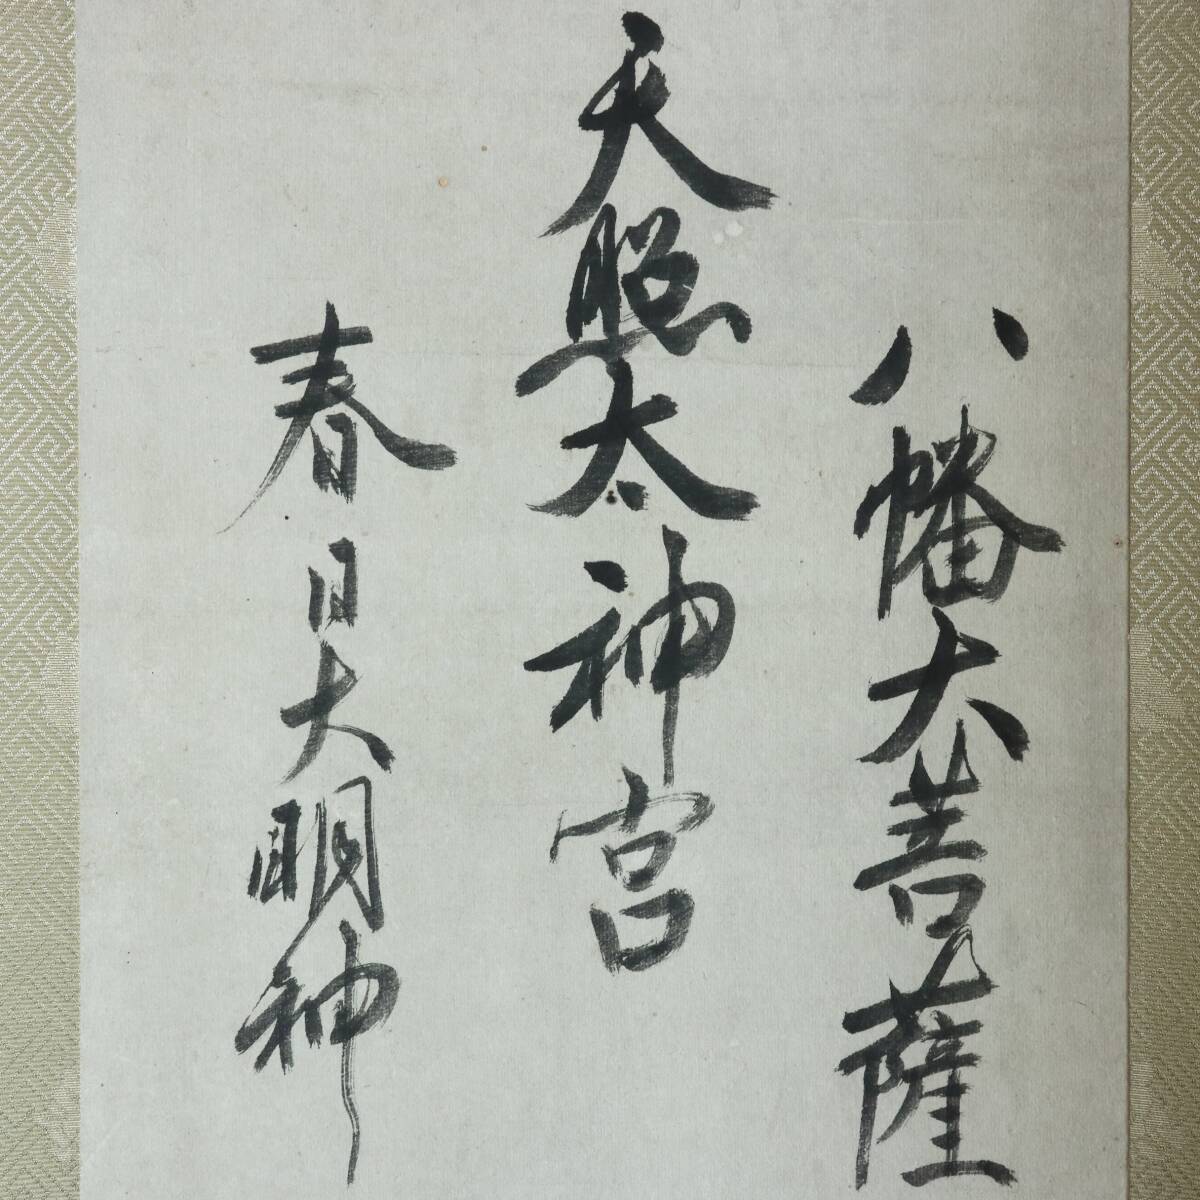 八幡大菩薩
天照太神宮
春日大明神